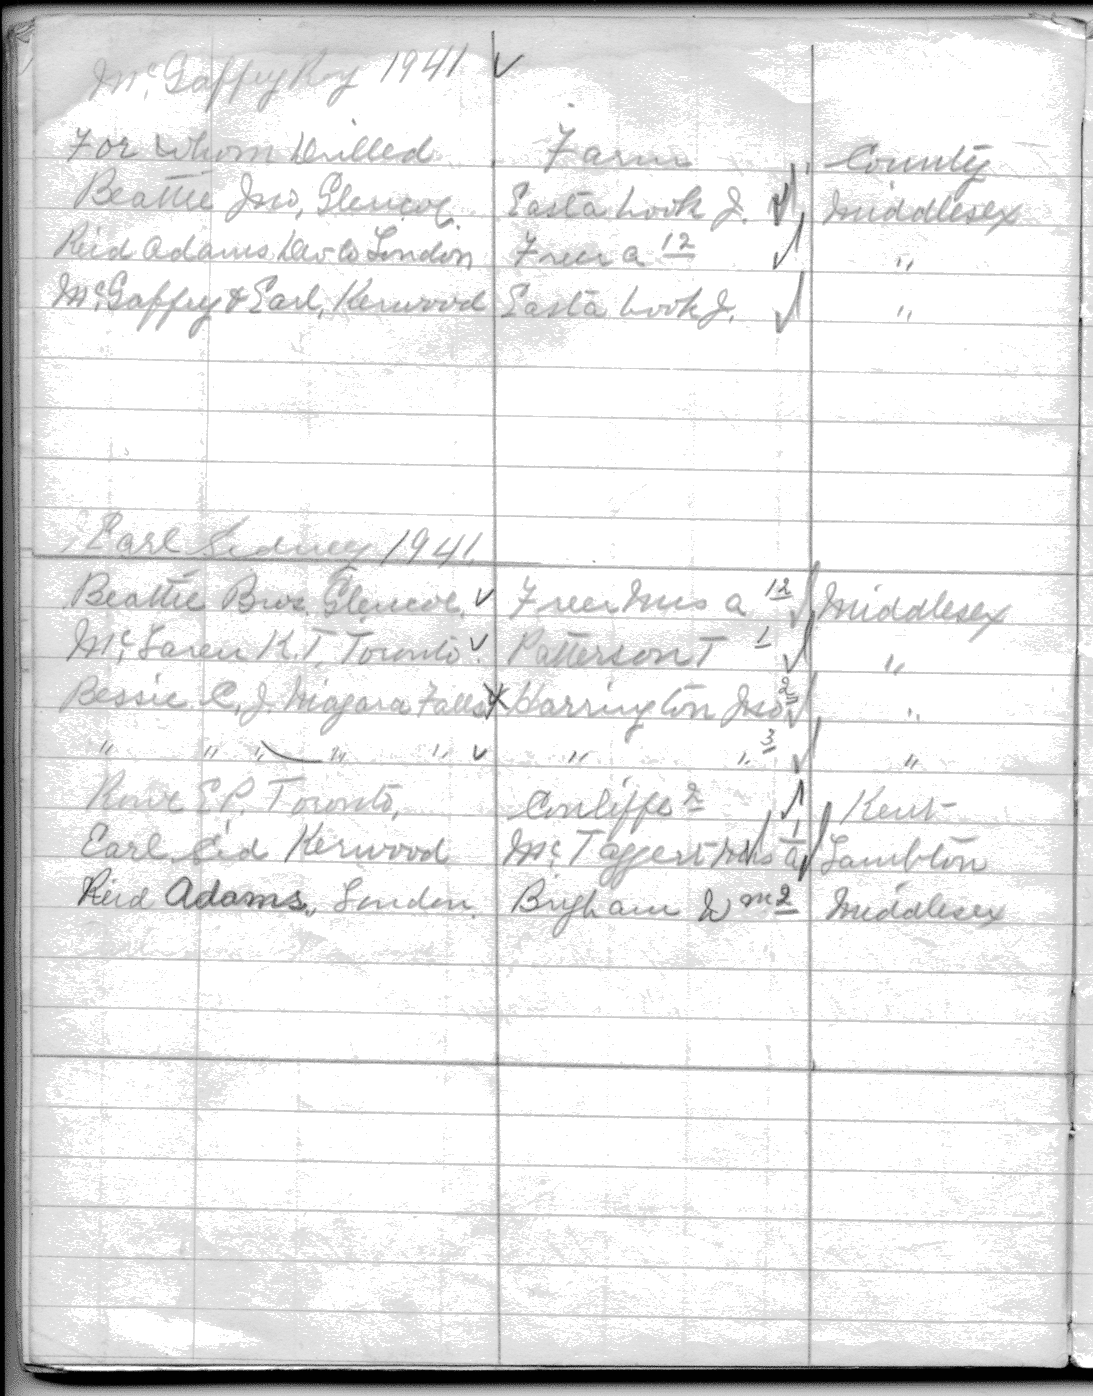 Mc Gaffey Roy 1941 ✓
For whom Drilled Farm County
Beattie Jno, Glencoe. Easta brook J. ✓ Middlesex
Reid Adams Dev Co London Freer a 12 ✓ "
Mc Gaffey & Earl, Kerwood Easta brook J. ✓ "
Earl Sidney 1941
Beattie Bros. Glencoe. ✓ Freer Mrs a 12 ✓ Middlesex
Mc Laren K.T. Toronto ✓ Patterson T 1 ✓ "
Bessie C. J. Niagara Falls Harrington Jno 2 ✓ "
" " " " " ✓ " " 3 ✓ "
Rowe E P. Toronto, Conliffe 2 ✓ Kent
Earl Sid Kerwood Mc Taggert Mrs a 1 Lambton
Reid Adams, London. Brigham Wm 2 Middlesex